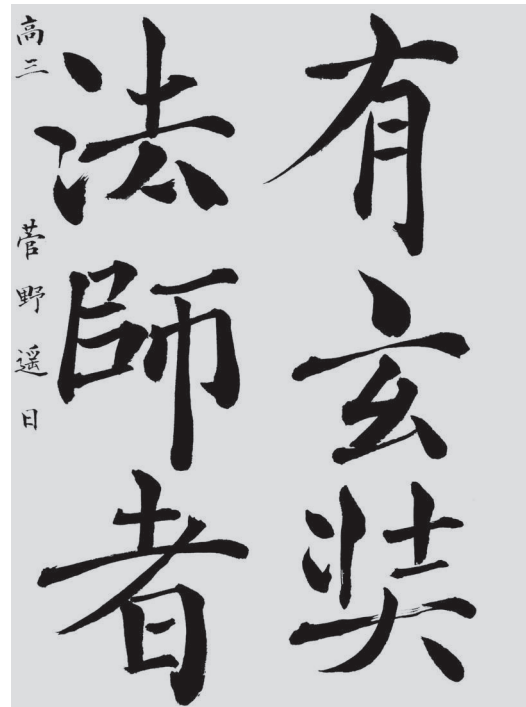 有玄奘
法師者
高三 菅野遥日